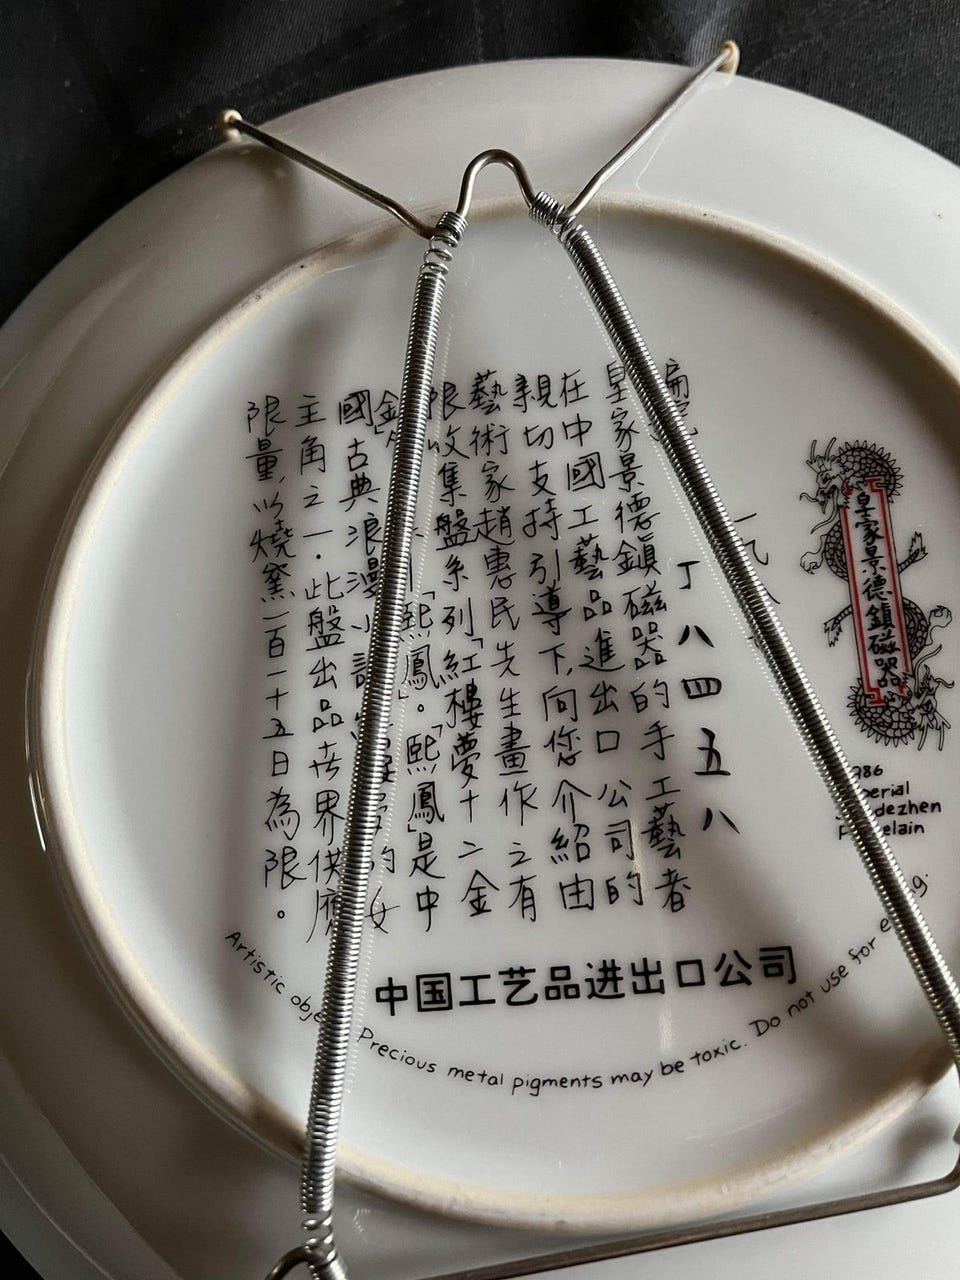 丁八四五八
皇家景德鎮磁器的手工藝者
在中國工藝品進出口公司的
親切支持引導下,向您介紹由
藝術家趙惠民先生畫作之有
限收集盤系列「紅樓夢十二金
「熙鳳」。「熙鳳」是中
國古典浪漫小說 的女
主角之一．此盤出品世界供應
限量，以燒窯一百一十五日為限。
皇家景德鎮磁器
中国工艺品进出口公司
Artistic Precious metal pigments may be toxic. Do not use for